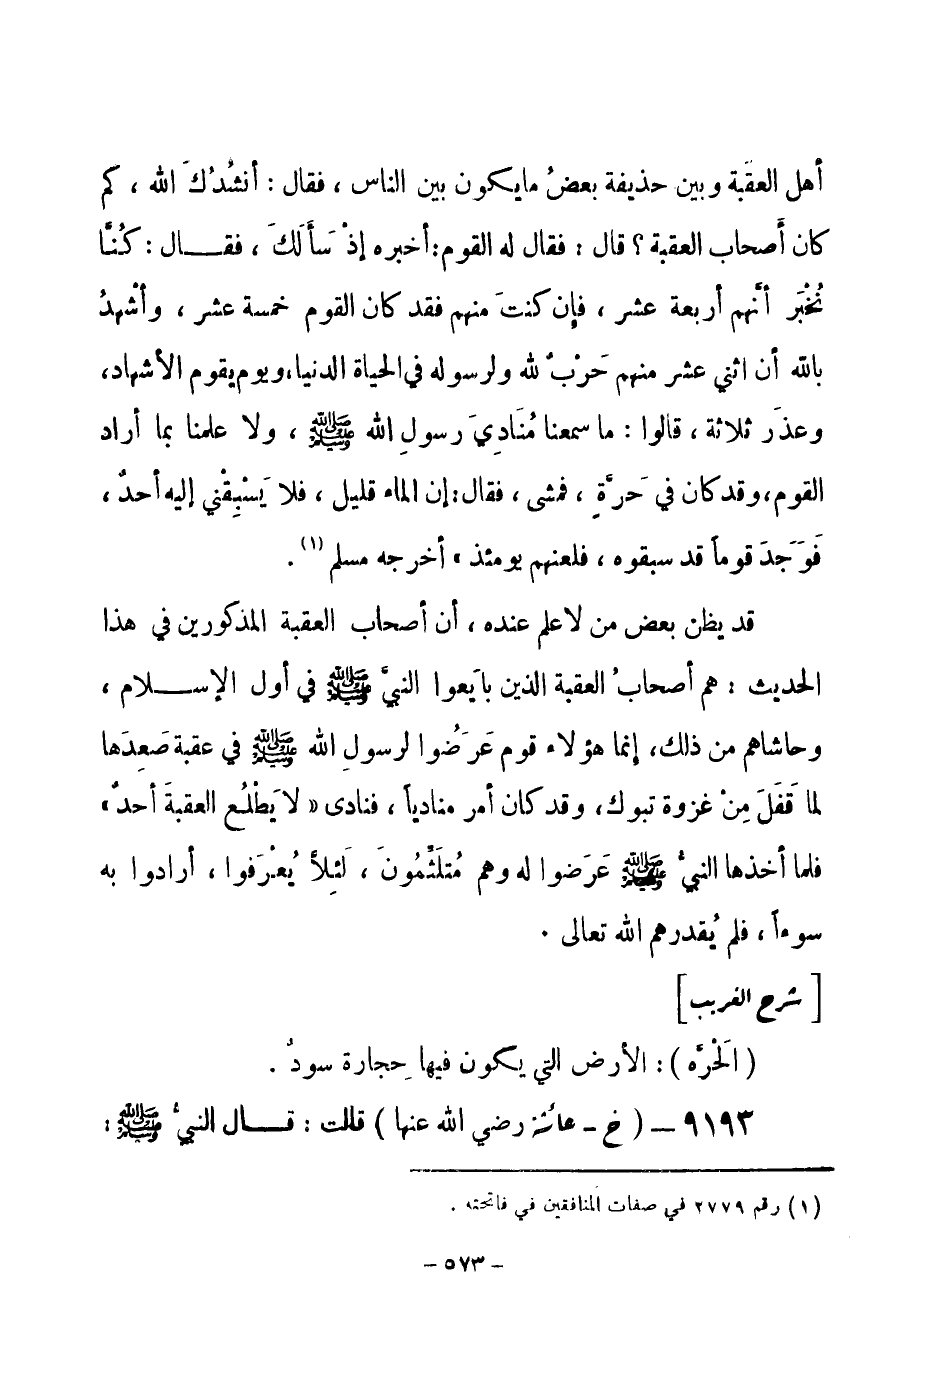 أهل العقَبة وبين حذيفة بعضُ مايكون بين الناس ، فقال : أنشُدُكَ الله ، كم
كان أَصحاب العقبة ؟ قال : فقال له القوم:أخبره إذْ سَأَلَكَ ، فقــال : كُنَّا
نُخْبَر أنَّهم أربعة عشر ، فإن كنتَ منهم فقد كان القوم خمسة عشر ، وأشْهدُ
بالله أن اثني عشر منهم حَرْبٌ لله ولرسوله في الحياة الدنيا،ويوم يقوم الأشهاد،
وعذَر ثلاثة ، قالوا : ما سمعنا مُنَادِيَ رسولِ الله ﷺ ، ولا علمنا بما أراد
القوم،وقد كان في حَرَّةٍ ، فمشى ، فقال:إن الماء قليل ، فلا يَسْبِقْني إليه أحدٌ ،
فَوَجَدَ قوماً قد سبقوه ، فلعنهم يومئذ » أخرجه مسلم (١) .
قد يظن بعض من لاعلم عنده ، أن أصحاب العقبة المذكورين في هذا
الحديث : هم أصحابُ العقبة الذين بايَعوا النبيَّ ﷺ في أول الإســلام ،
وحاشاهم من ذلك، إنما هؤلاء قوم عَرَضُوا لرسولِ الله ﷺ في عقبة صَعِدَها
لما قَفَلَ مِنْ غزوة تبوك، وقد كان أمر منادياً ، فنادى « لا يَطْلُع العقبةَ أحدٌ »
فلما أخذها النبيُّ ﷺ عَرَضوا له وهم مُتلَثِّمُونَ ، لَئِلاَّ يُعْرَفوا ، أرادوا به
سوءاً ، فلم يُقدرهم الله تعالى .
[ شرح الغريب ]
( الحَرَّه ) : الأرض التي يكون فيها حِجارة سودٌ .
٩١٩٣ – ( خ - عائشة رضي الله عنها ) قالت : قــال النبيُّ ﷺ :
(١) رقم ٢٧٧٩ في صفات المنافقين في فاتحته .
- ٥٧٣ -